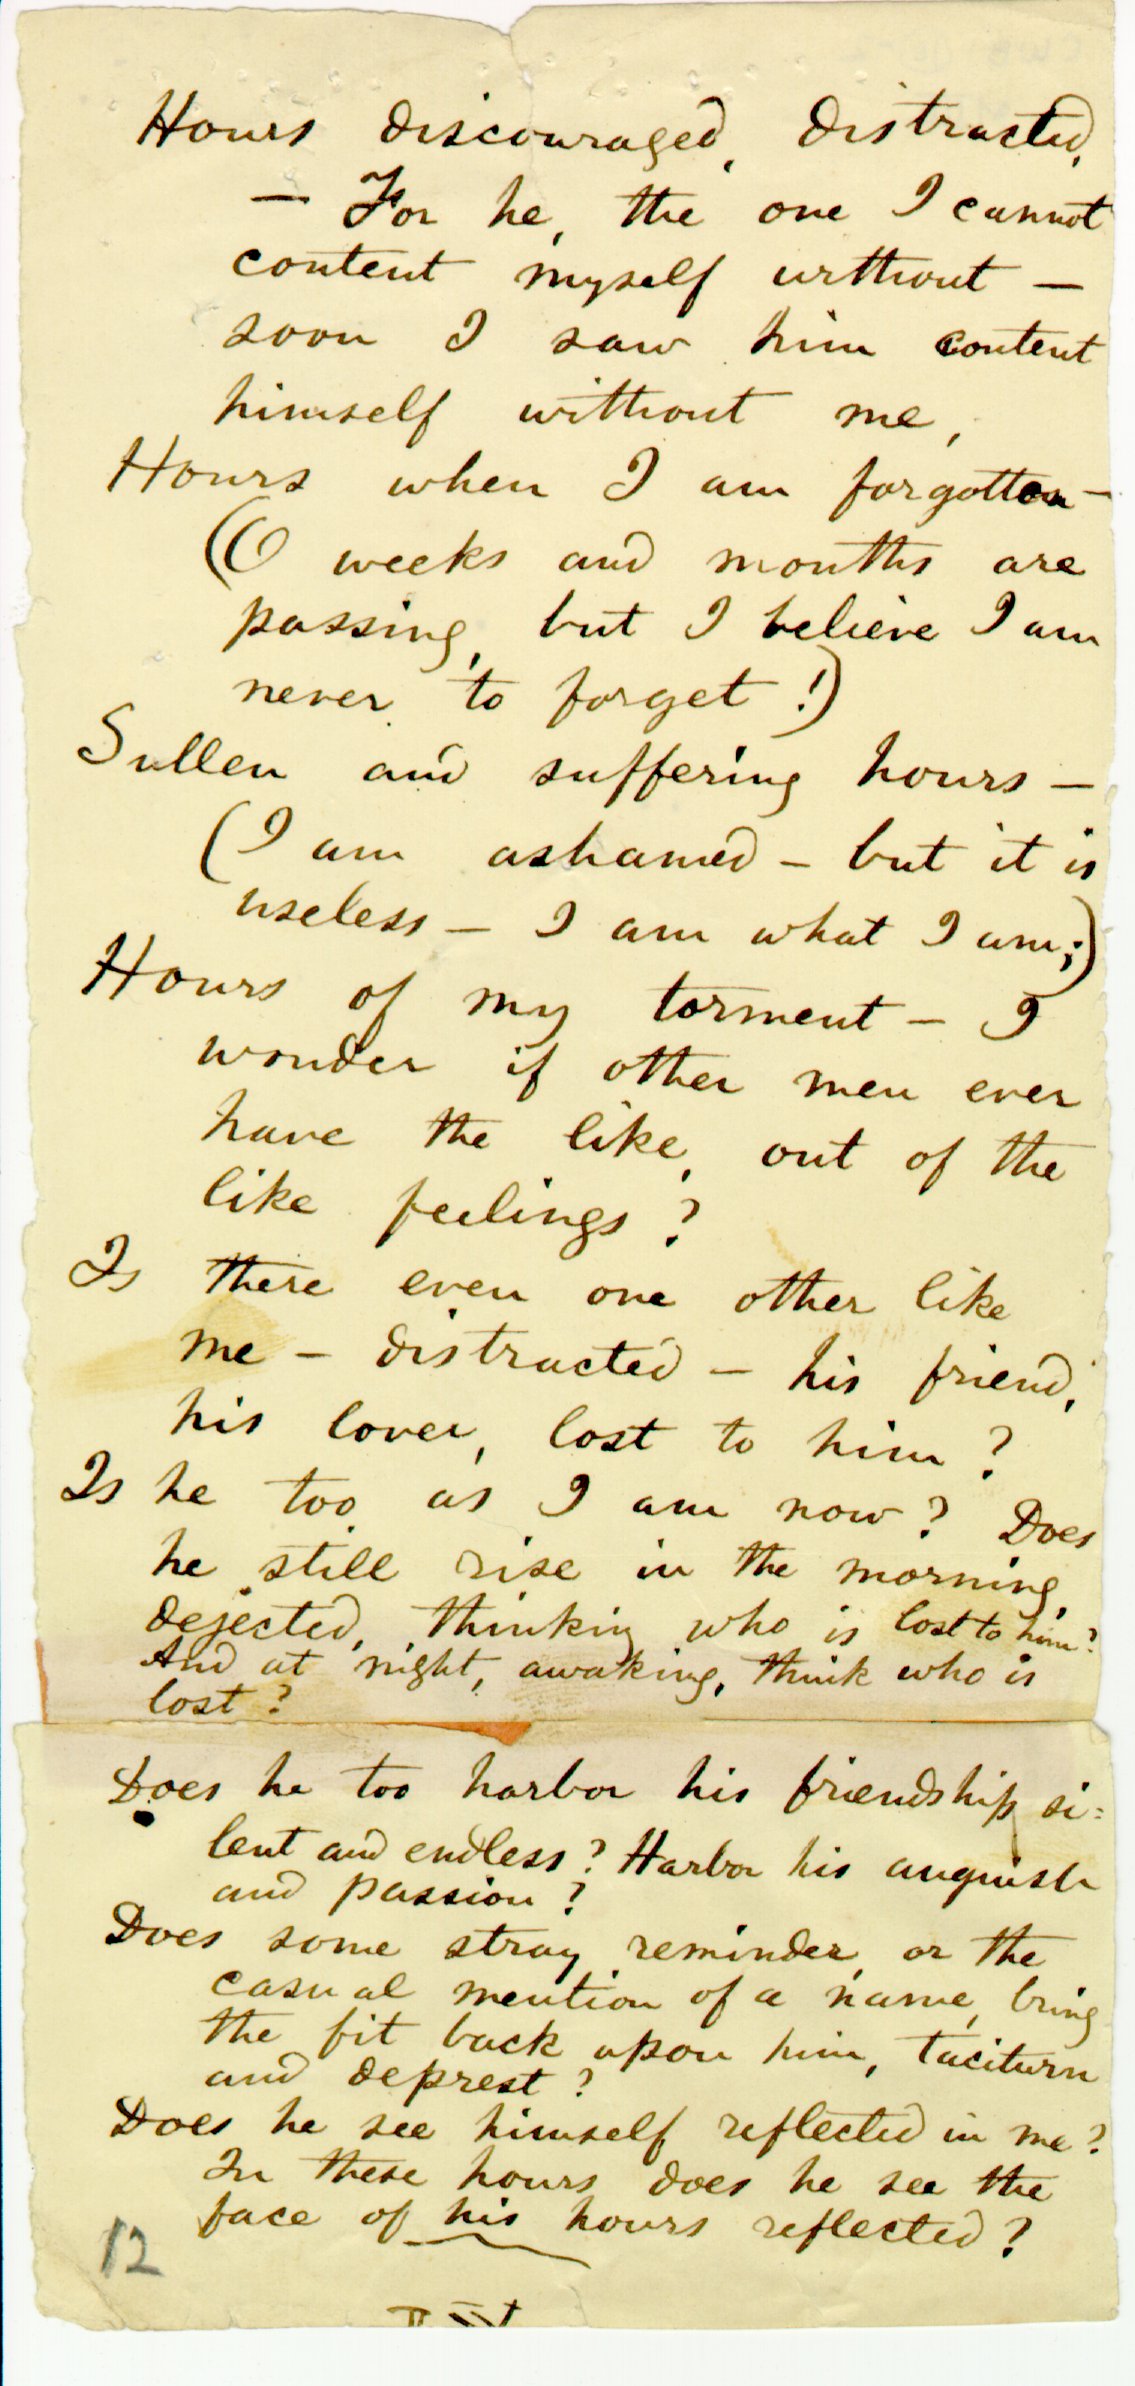 Hours discouraged, distracted,
— For he, the one I cannot
content myself without —
soon I saw him content
himself without me,
Hours when I am forgotten —
(O weeks and months are
passing, but I believe I am
never to forget!)
Sullen and suffering hours —
(I am ashamed — but it is
useless — I am what I am;)
Hours of my torment — I
wonder if other men ever
have the like, out of the
like feelings?
Is there even one other like
me — distracted — his friend,
his lover, lost to him?
Is he too as I am now? Does
he still rise in the morning,
dejected, thinking who is lost to him?
And at night, awaking, think who is
lost?
Does he too harbor his friendship si=
lent and endless? Harbor his anguish
and passion?
Does some stray reminder, or the
casual mention of a name, bring
the fit back upon him, taciturn
and deprest?
Does he see himself reflected in me?
In these hours does he see the
face of his hours reflected?
12